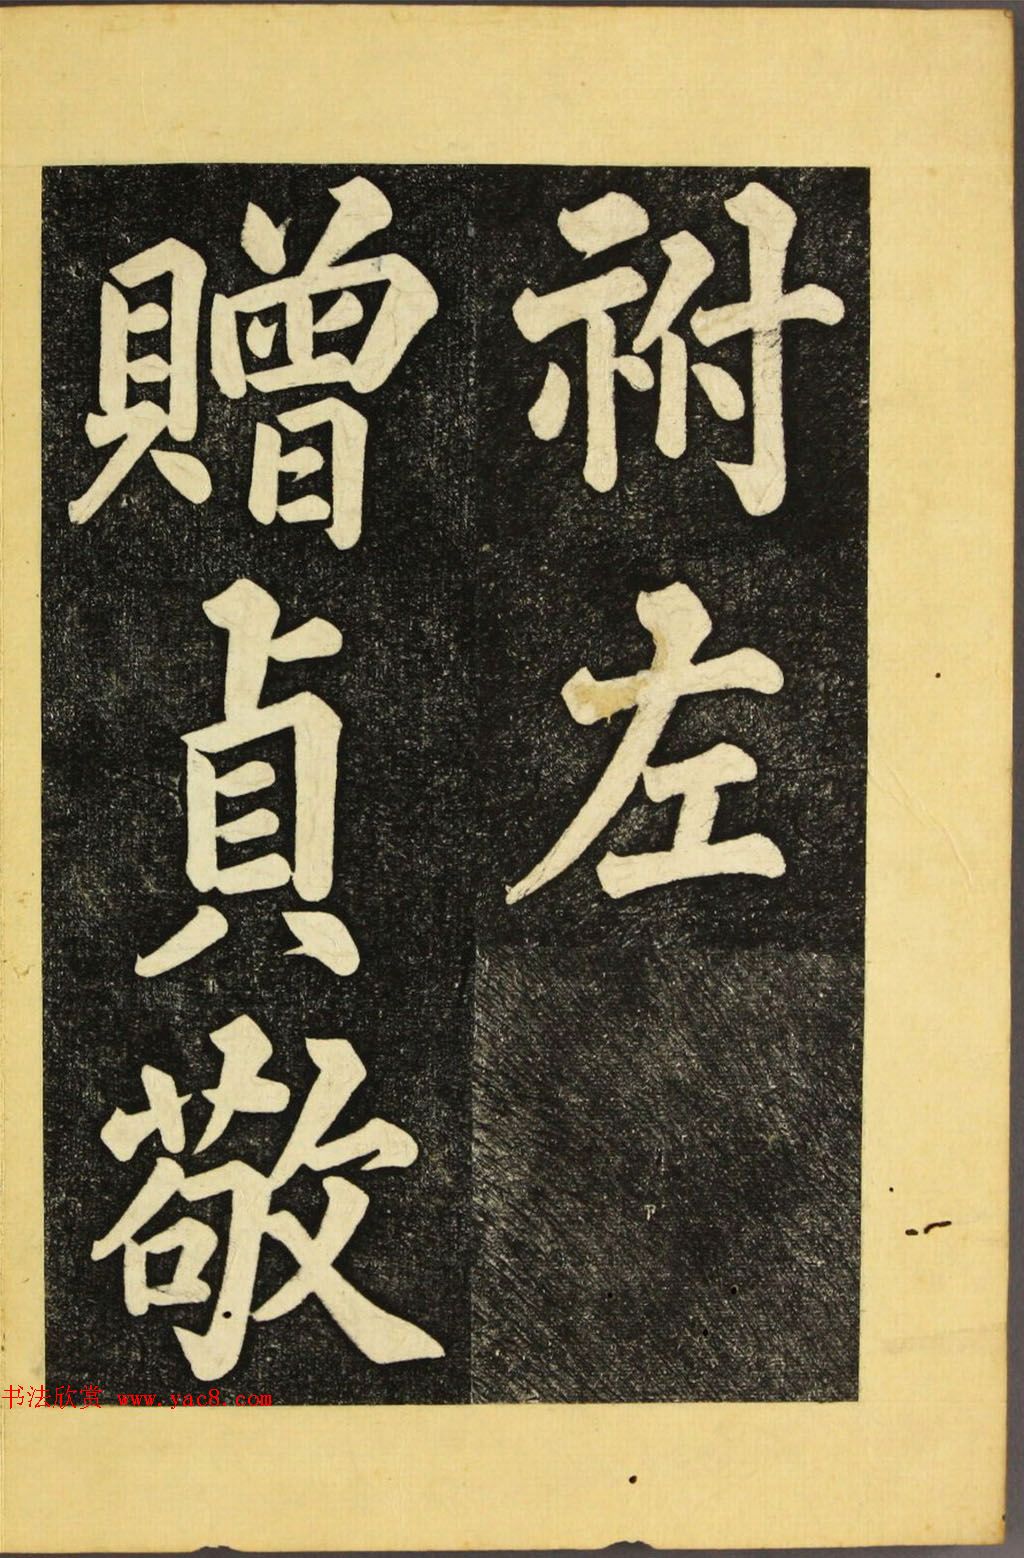 祔左
贈貞敬
书法欣赏 www.yac8.com